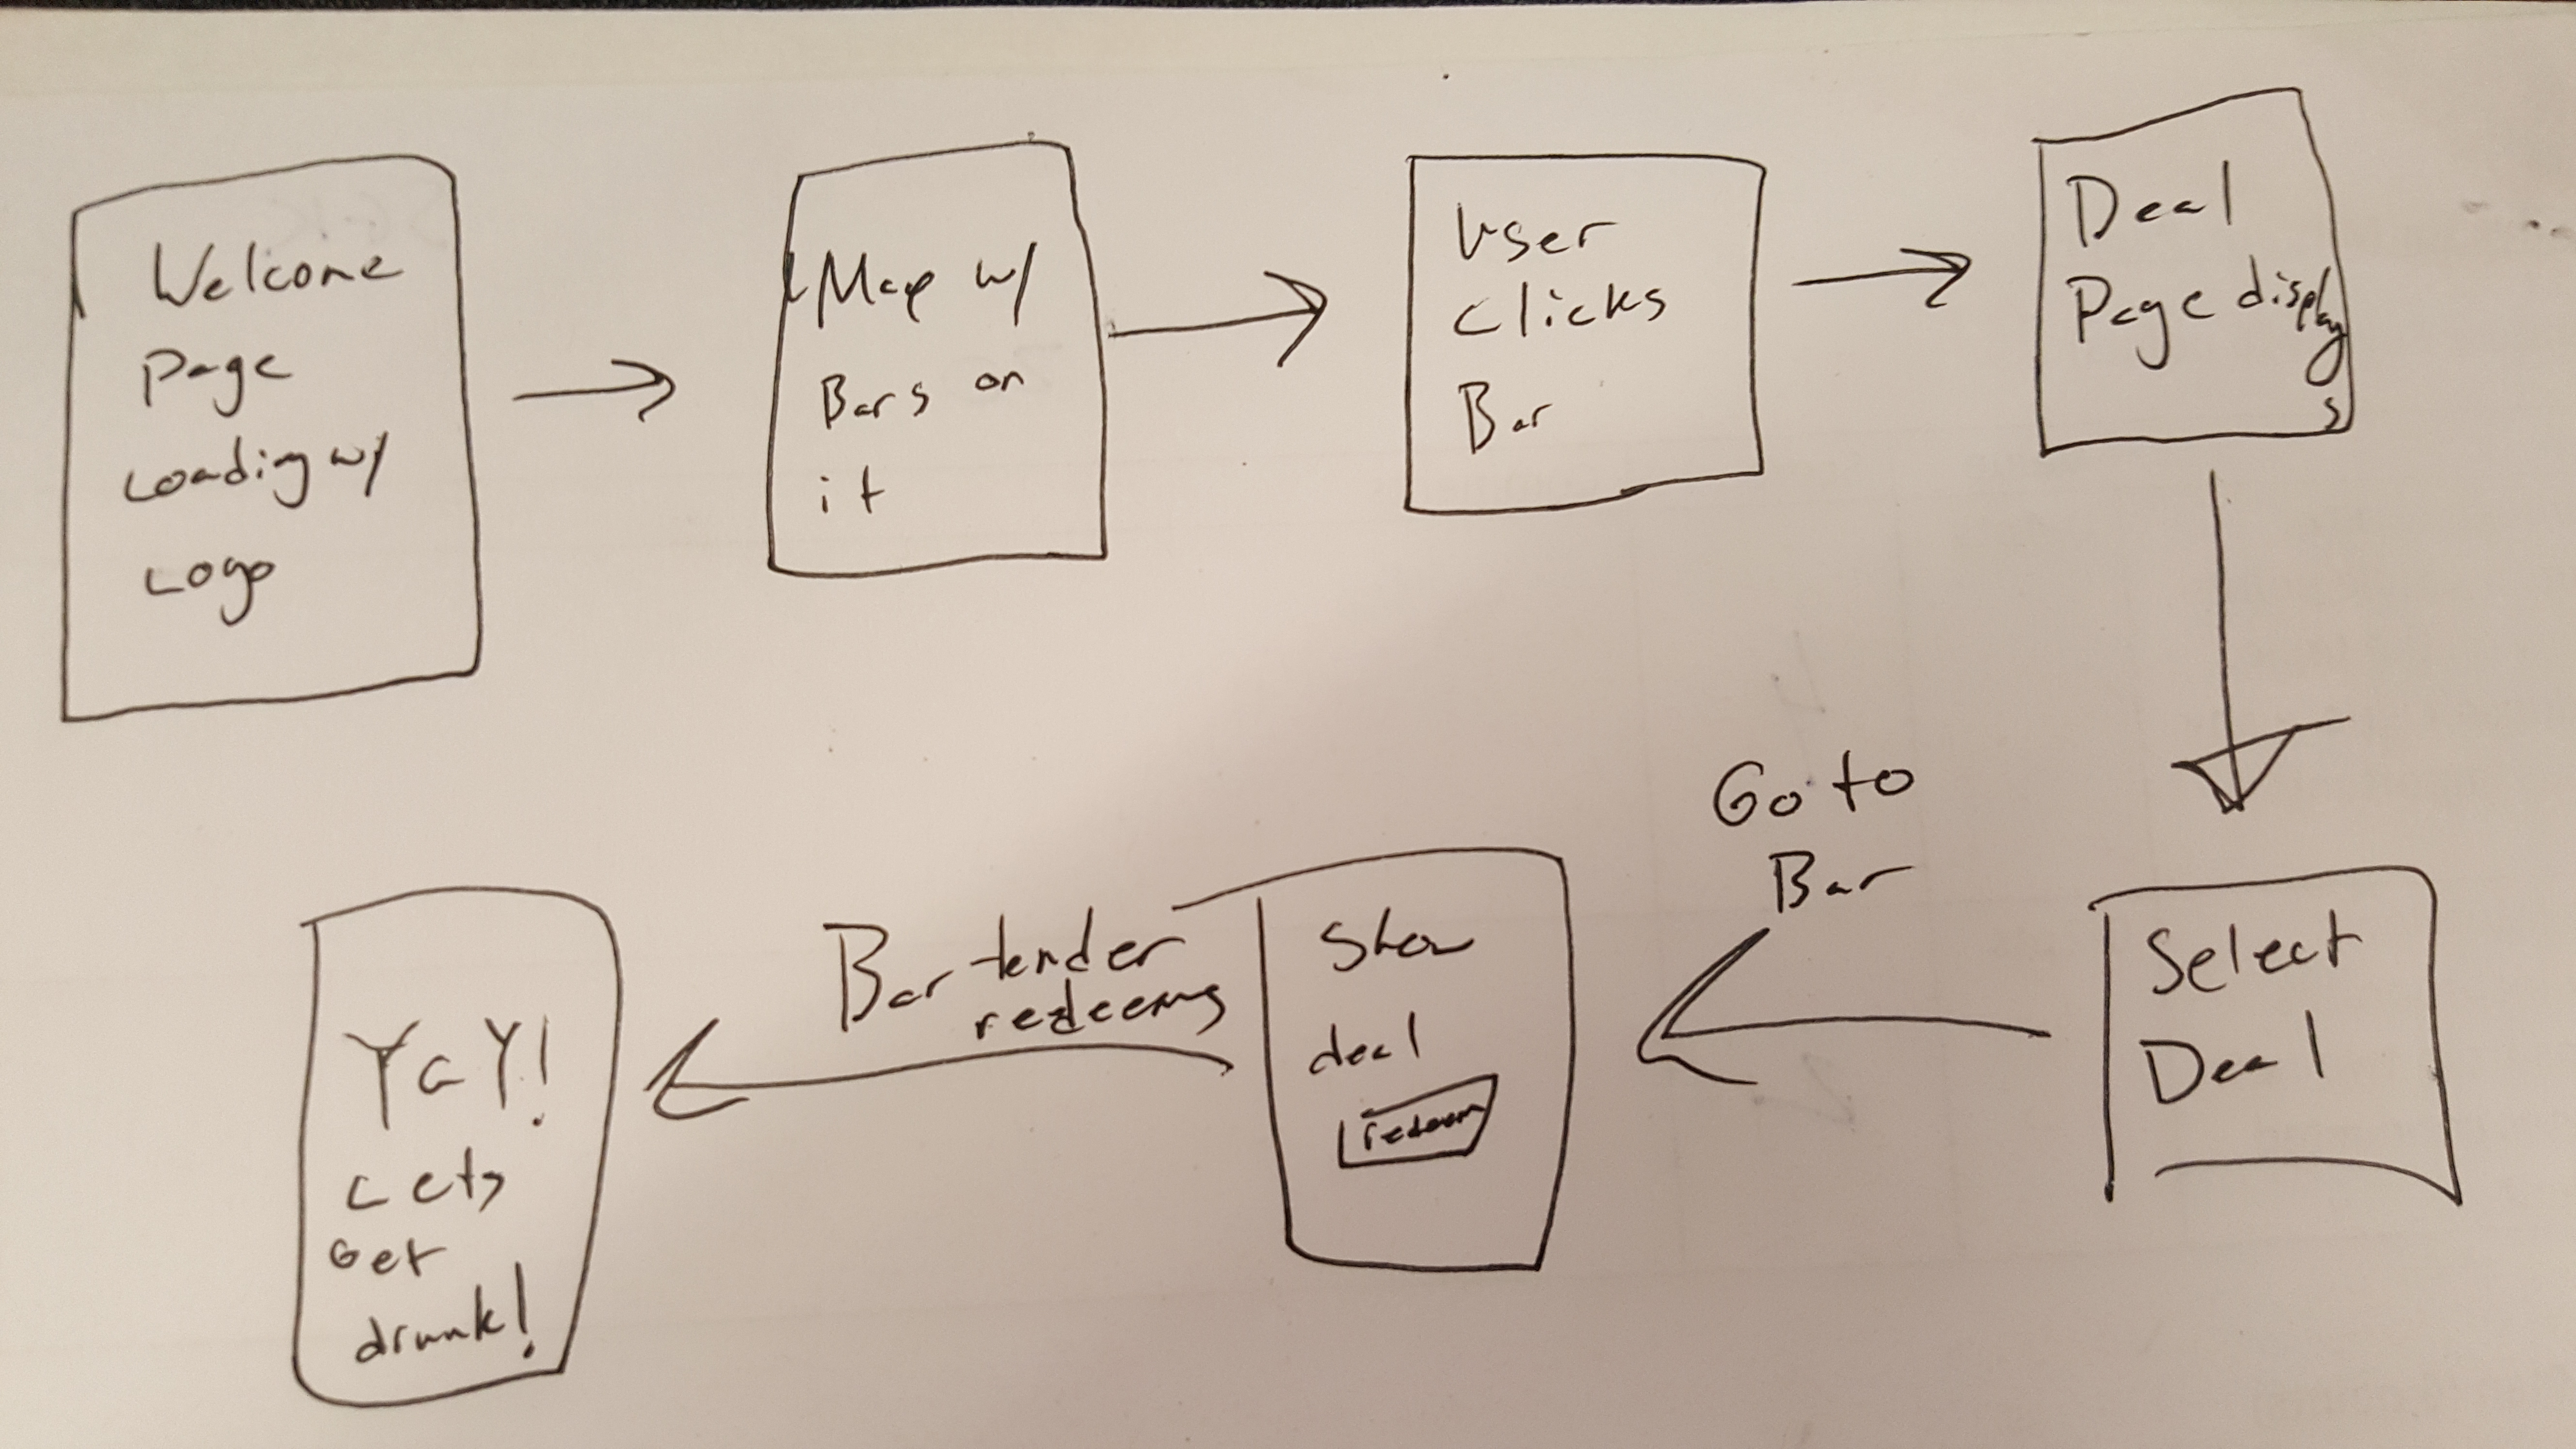 Welcome
Page
Loading w/
Logo
Map w/
Bars on
it
User
Clicks
Bar
Deal
Page displays
Select
Deal
Go to
Bar
Show
deal
redeem
Bar-tender
redeems
YaY!
Lets
Get
drunk!